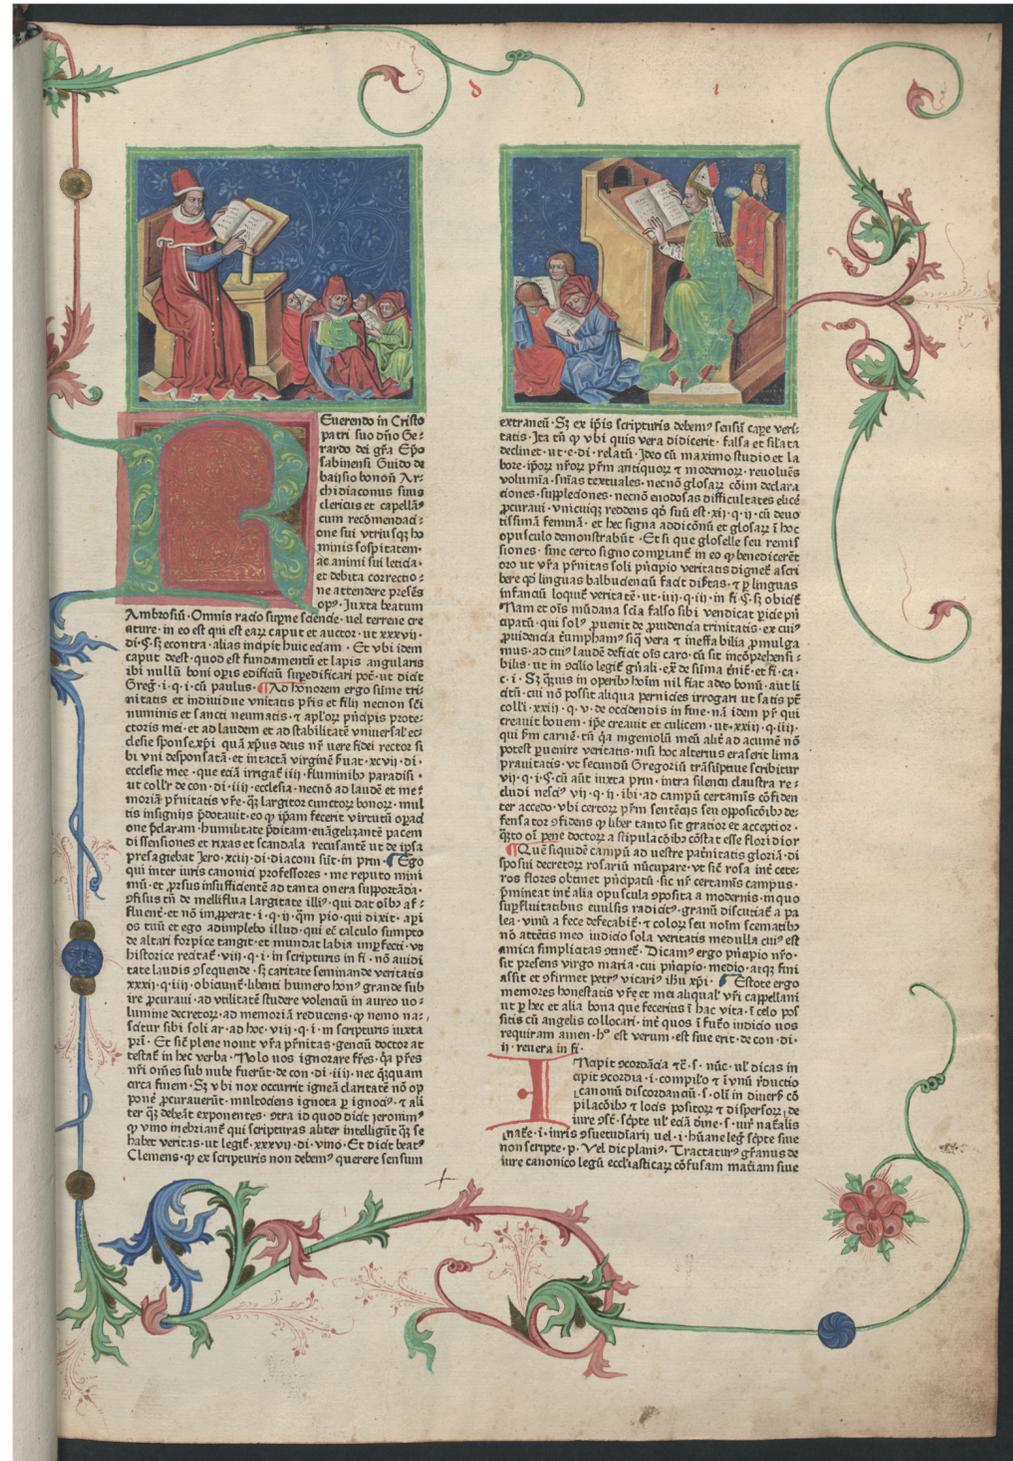 Euerendo in Cristo
patri suo dño Ge⸗
rardo dei gr̃a Ep̃o
sabinensi Guido de
baiisio bonoñ Ar⸗
chidiaconus suus
clericus et capellaꝰ
cum recõmendaci⸗
one sui vtriusqꝫ ho
minis sospitatem·
ac animi sui leticia⸗
et debita correctio⸗
ne attendere presẽs
opꝰ· Iuxta beatum
Ambrosiũ· Omnis racio supne sciencie· uel terrene cre
ature· in eo est qui est eaꝝ caput et auctor· ut xxxvij·
di· ꝯ· sꝫ econtra· alias incipit huic eciam· Et vbi idem
caput deest· quod est fundamentũ et lapis angularis
ibi nullũ boni opis edificiũ supedificari pot̃· ut dicit
Greg̃· i· q· i· cũ paulus· Ad honorem ergo sũme tri⸗
nitatis et indiuidue vnitatis pr̃is et filij necnon sc̃i
numinis et sancti neumatis· ⁊ apl'oꝝ pñcipis prote⸗
ctoris mei· et ad laudem et ad stabilitatẽ vniuersal' ec⸗
clesie sponse xp̃i quã xp̃us deus nr̃ uere fidei rector si
bi vni desponsatã· et intactã virginẽ fuat· xcvij· di·
ecclesie mee· que eciã irrigat̃ iiij fluminibꝰ paradisi·
ut coll'r de con· di· iiij· ecclesia· necnõ ad laudẽ et me⸗
moriã pr̃nitatis vr̃e· qꝫ largitor cunctoꝝ bonoꝝ· mul
tis insignijs p̃dotauit· eo ꝙ ip̃am fecerit virtutũ oꝑacĩ
one p̃claram· humilitate p̃ditam· euãgelizantẽ pacem
dissensiones et rixas et scandala recusantẽ ut de ipsa
presagiebat Jero· xciij· di· diaconi sũt· in prin· Ego
qui inter iuris canonici professores· me reputo mini
mũ· et ꝓrsus insufficientẽ ad tanta onera supportãda·
ꝯfisus tñ de melliflua largitate illiꝰ· qui dat oĩbꝰ af⸗
fluent̃· et nõ imꝓperat· i· q· ij· qm̃ pio· qui dixit· aꝑi
os tuũ et ego adimplebo illud· qui ec̃ calculo sumpto
de altari forpice tangit· et mundat labia imꝑfecti· vt
historice recitat̃· viij· q· i· in scripturis in fi· nõ auidi
tate laudis ꝯsequende· sꝫ caritate seminande veritatis
xxxij· q· iiij· obiciunt̃· libenti humero honꝰ grande sub
ire ꝓcuraui· ad vtilitatẽ studere volenciũ in aureo uo⸗
lumine decretoꝝ· ad memoriã reducens· ꝙ nemo na⸗
scitur sibi soli ar· ad hoc· viij· q· i· in scripturis iuxta
pri· Et sic̃ plene nouit vr̃a pr̃nitas· genciũ doctor at
testat̃ in hec verba· Nolo uos ignorare fr̃es· qa pr̃es
nr̃i om̃es sub nube fuerũt· de con· di· iiij· nec qꝫquam
circa finem· Sꝫ vbi nox occurrit igneã claritatẽ nõ op
ponẽ ꝓcurauerũt· multociens ignota ꝑ ignociꝰ· ⁊ ali
ter qꝫ debeãt exponentes· ꝯtra id quod dicit jeronimꝰ
ꝙ vino inebriant̃ qui scripturas aliter intelligũt qꝫ se
habet veritas· ut legit̃· xxxvij· di· vino· Et dicit beatꝰ
Clemens· ꝙ ex scripturis non debemꝰ querere sensum
extraneũ· Sꝫ ex ip̃is scripturis debemꝰ sensũ caꝑe veri⸗
tatis· Ita tñ ꝙ vbi quis vera didicerit· falsa et siĩata
declinet· ut· e· di· relatũ· Ideo cũ maximo studio et la
bore· ip̃oꝝ nr̃oꝝ pr̃m antiquoꝝ ⁊ modernoꝝ· reuoluẽs
volumĩa· sniãs textuales· necnõ glosaꝝ cõim declara
ciones· suppleciones· necnõ enodosas difficultates elicẽ
ꝓcuraui· vnicuiqꝫ reddens qđ suũ est· xij· q· ij· cũ deuo
tissimã feminã· et hec signa addicõnũ et glosaꝝ ĩ hoc
opusculo demonstrabũt· Et si que gloselle seu remis
siones· sine certo signo compiant̃ in eo ꝙ benedicerẽt
oro ut vr̃a pr̃nitas soli pñcipio veritatis dignet̃ ascri
bere qđ linguas balbucienciũ facit disertas· ⁊ ꝑ linguas
infanciũ loquit̃ veritatẽ· ut· iiij· q· iij· in fi ꝯ· sꝫ obicit̃
Nam et oĩs mũdana scia falso sibi vendicat ꝑicie pñ
cipatũ· qui solꝰ ꝓuenit de ꝓuidencia trinitatis· ex cuiꝰ
ꝓuidencia triumphamꝰ· siqꝫ vera ⁊ ineffabilia ꝓmulga
mus· ad cuiꝰ laudẽ deficit oĩs caro· cũ sit incõprehensi⸗
bilis· ut in ꝯcilio legit̃ gñali· ex̃ de sũma t̃init· et fi· ca·
c· i· Sꝫ qꝫuis in operibꝰ hoĩm nil fiat adeo bonũ· aut li
citũ· cui nõ possit aliqua pernicies irrogari ut satis pt̃
colli· xxiij· q· v· de occidendis in fine· nã idem pr̃ qui
creauit bouem· ip̃e creauit et culicem· ut· xxiij· q· iiij·
qui p̃m carnẽ· tñ qa ingeniolũ meũ alit̃ ad acumẽ nõ
potest ꝑuenire veritatis· nisi hoc alterius eraserit lima
prauitatis· vt secundũ Gregoriũ trãsũptiue scribitur
vij· q· i· ꝯ· cũ aũt iuxta prin· intra silencij claustra re⸗
cludi nesciꝰ vij· q· ij· ibi· ad campũ certamis cõfiden
ter accedo· vbi certoꝝ pr̃m sentẽcijs seu opposicõibꝰ de⸗
fensator ꝯfidens ꝙ liber tanto sit gratior et acceptior·
qꝫto oĩ pene doctoꝝ a stipulacõibꝰ cõstat esse floridior
Quẽ siquidẽ campũ ad uestre patr̃nitatis gloriã· di
sposui decretoꝝ rosariũ nũcupare· vt sic̃ rosa int̃ cete⸗
ros flores obtinet pñcipatũ· sic nr̃ certamis campus·
p̃mineat int̃ alia opuscula ꝯposita a modernis· in quo
supfluitatibus euulsis radicitꝰ· granũ discutiat̃ a pa
lea· vinũ a fece defecabit̃· ⁊ coloꝝ seu noĩm scematibꝰ
nõ attẽtis meo iudicio sola veritatis medulla cuiꝰ est
amica simplicitas ꝯtinet̃· Dicamꝰ ergo pñcipio nr̃o·
sit presens virgo maria· cui pñcipio· medio· atqꝫ fini
assit et ꝯfirmet petrꝰ vicariꝰ ihu xp̃i· Estote ergo
memores honestatis vr̃e et mei aliqual' vr̃i cappellani
ut ꝑ hec et alia bona que feceritis ĩ hac vita· ĩ celo po⸗
sitis cũ angelis collocari· int̃ quos ĩ fut̃o iudicio uos
requiram amen· hº est verum· est siue erit· de con· di·
ij· reuera in fi·
Ncipit ꝯcordãcia tc̃· s· nũc· ul' dicas in
cipit ꝯcordia· i· compil'o ⁊ ĩ vnũ r̃ductio
canonũ discordanciũ· s· oli in diuerẽ cõ
pilacõibꝰ ⁊ locis positoꝝ ⁊ dispersoꝝ· de
iure ꝯst̃· sc̃pte ul' eciã dine· s· iur̃ nat̃alis
nat̃e· i· iuris ꝯsuetudiãrij uel· i· hũane leg̃ sc̃pte siue
non scripte· p· Vel dic planiꝰ· Tractaturꝰ gr̃anus de
iure canonico legũ eccl'iasticaꝝ cõfusam mat̃iam siue